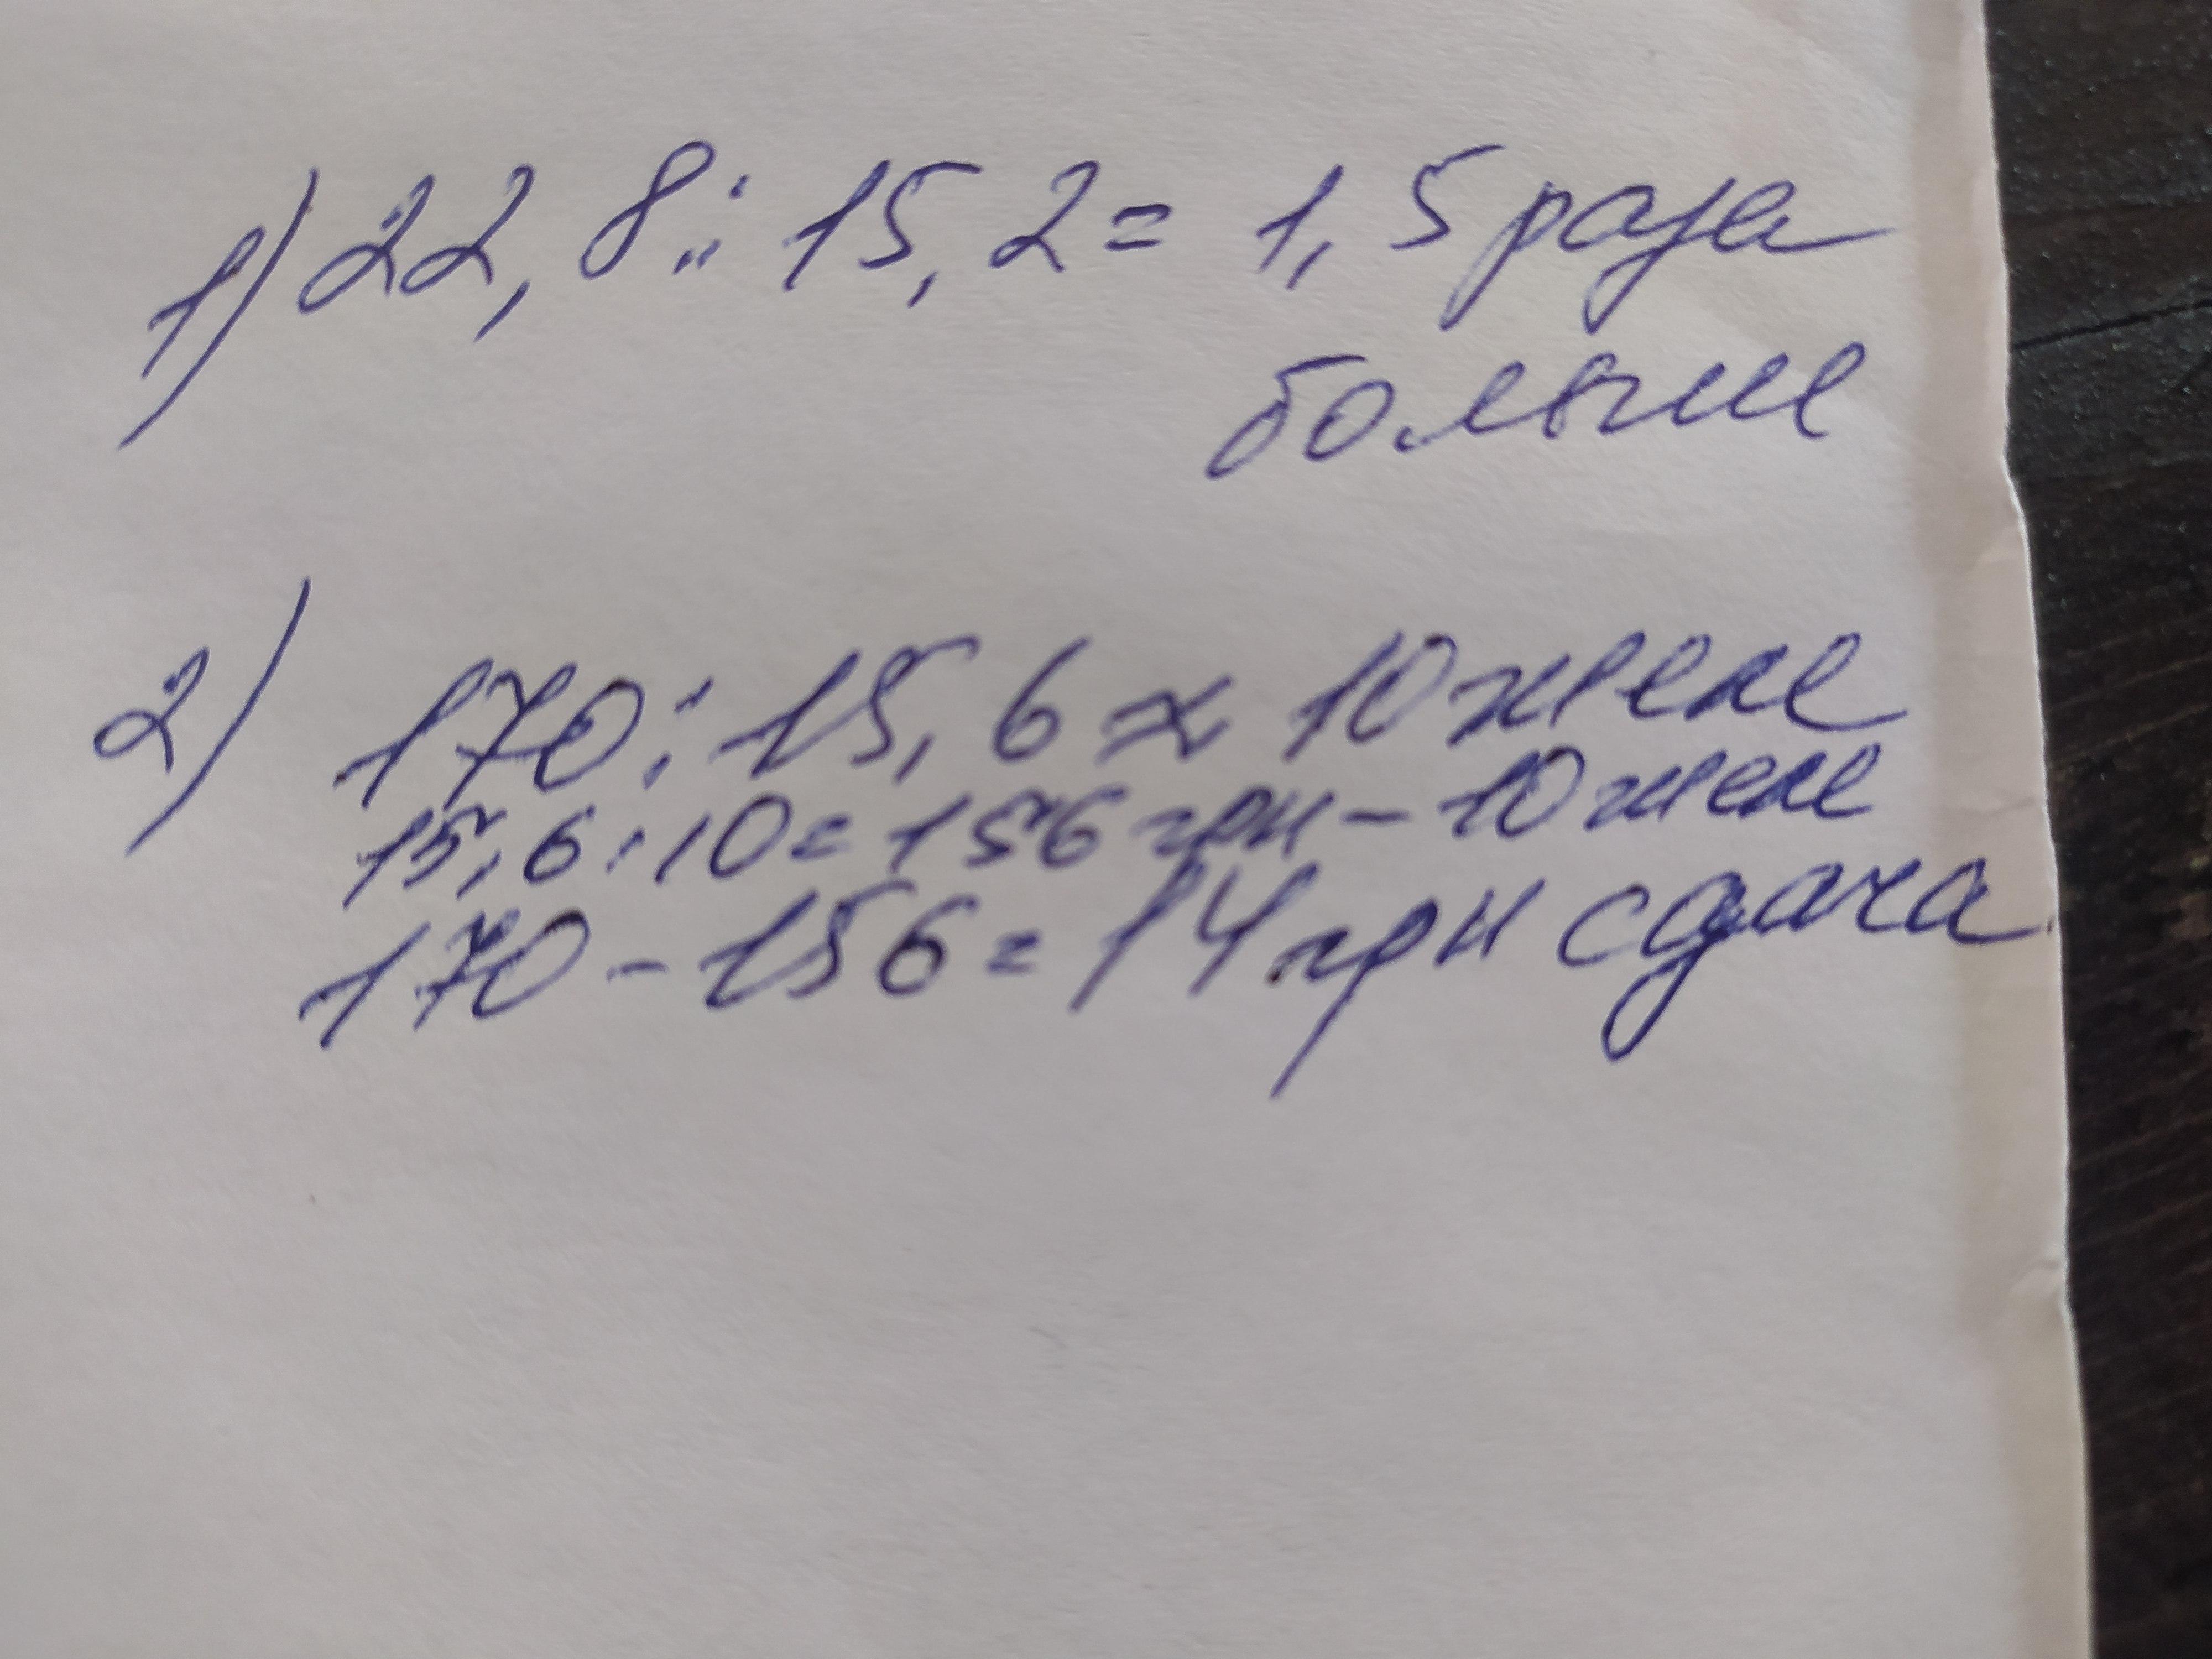 1) 22,8 : 15,2 = 1,5 раза
больше
2) 170 : 15,6 ≈ 10 желе
15,6 : 10 = 156 грн - 10 желе
170 - 156 = 14 грн сдача